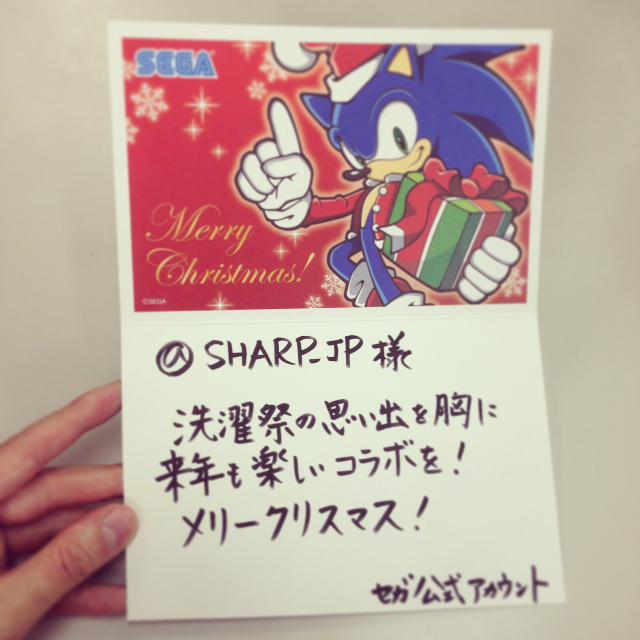 SEGA
Merry
Christmas!
©SEGA
@SHARP_JP 様
洗濯祭の思い出を胸に
来年も楽しいコラボを！
メリークリスマス！
セガ公式アカウント